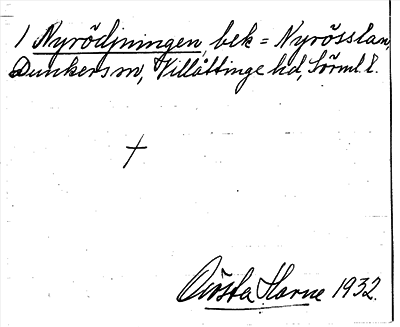 1 Nyrödjningen, bek = Nyrösslan,
Dunkers sn, Villåttinge hd, Sörml. l.
+
Gösta Harne 1932.